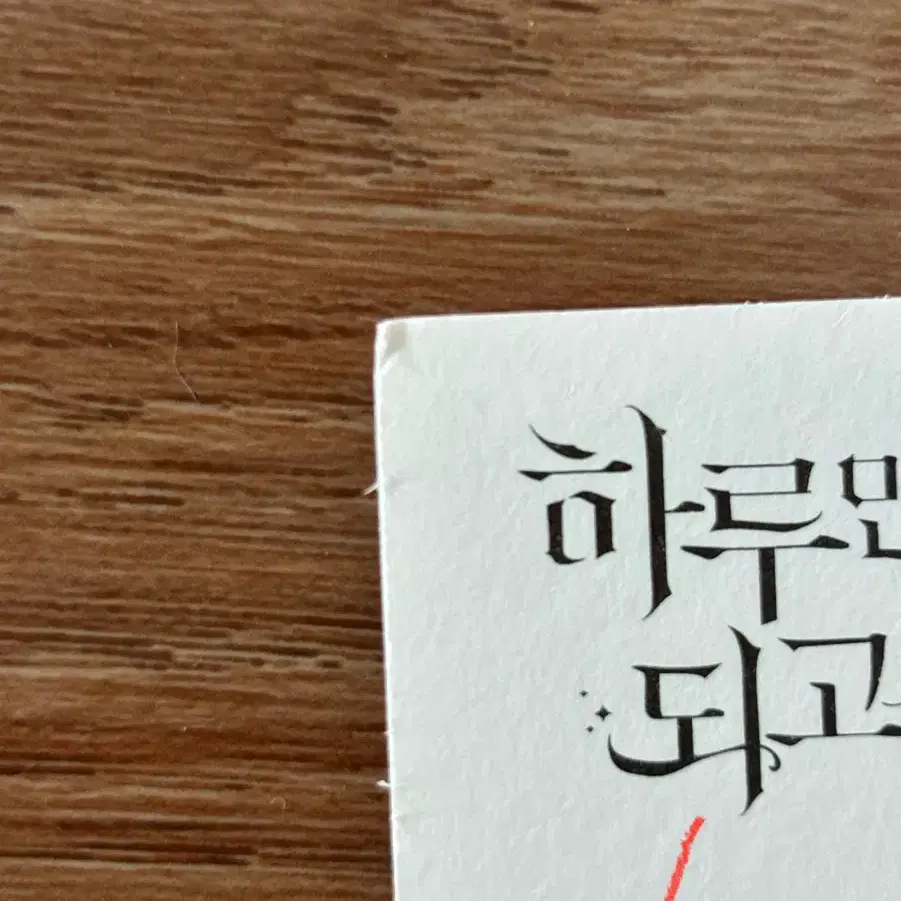 하루만
되고